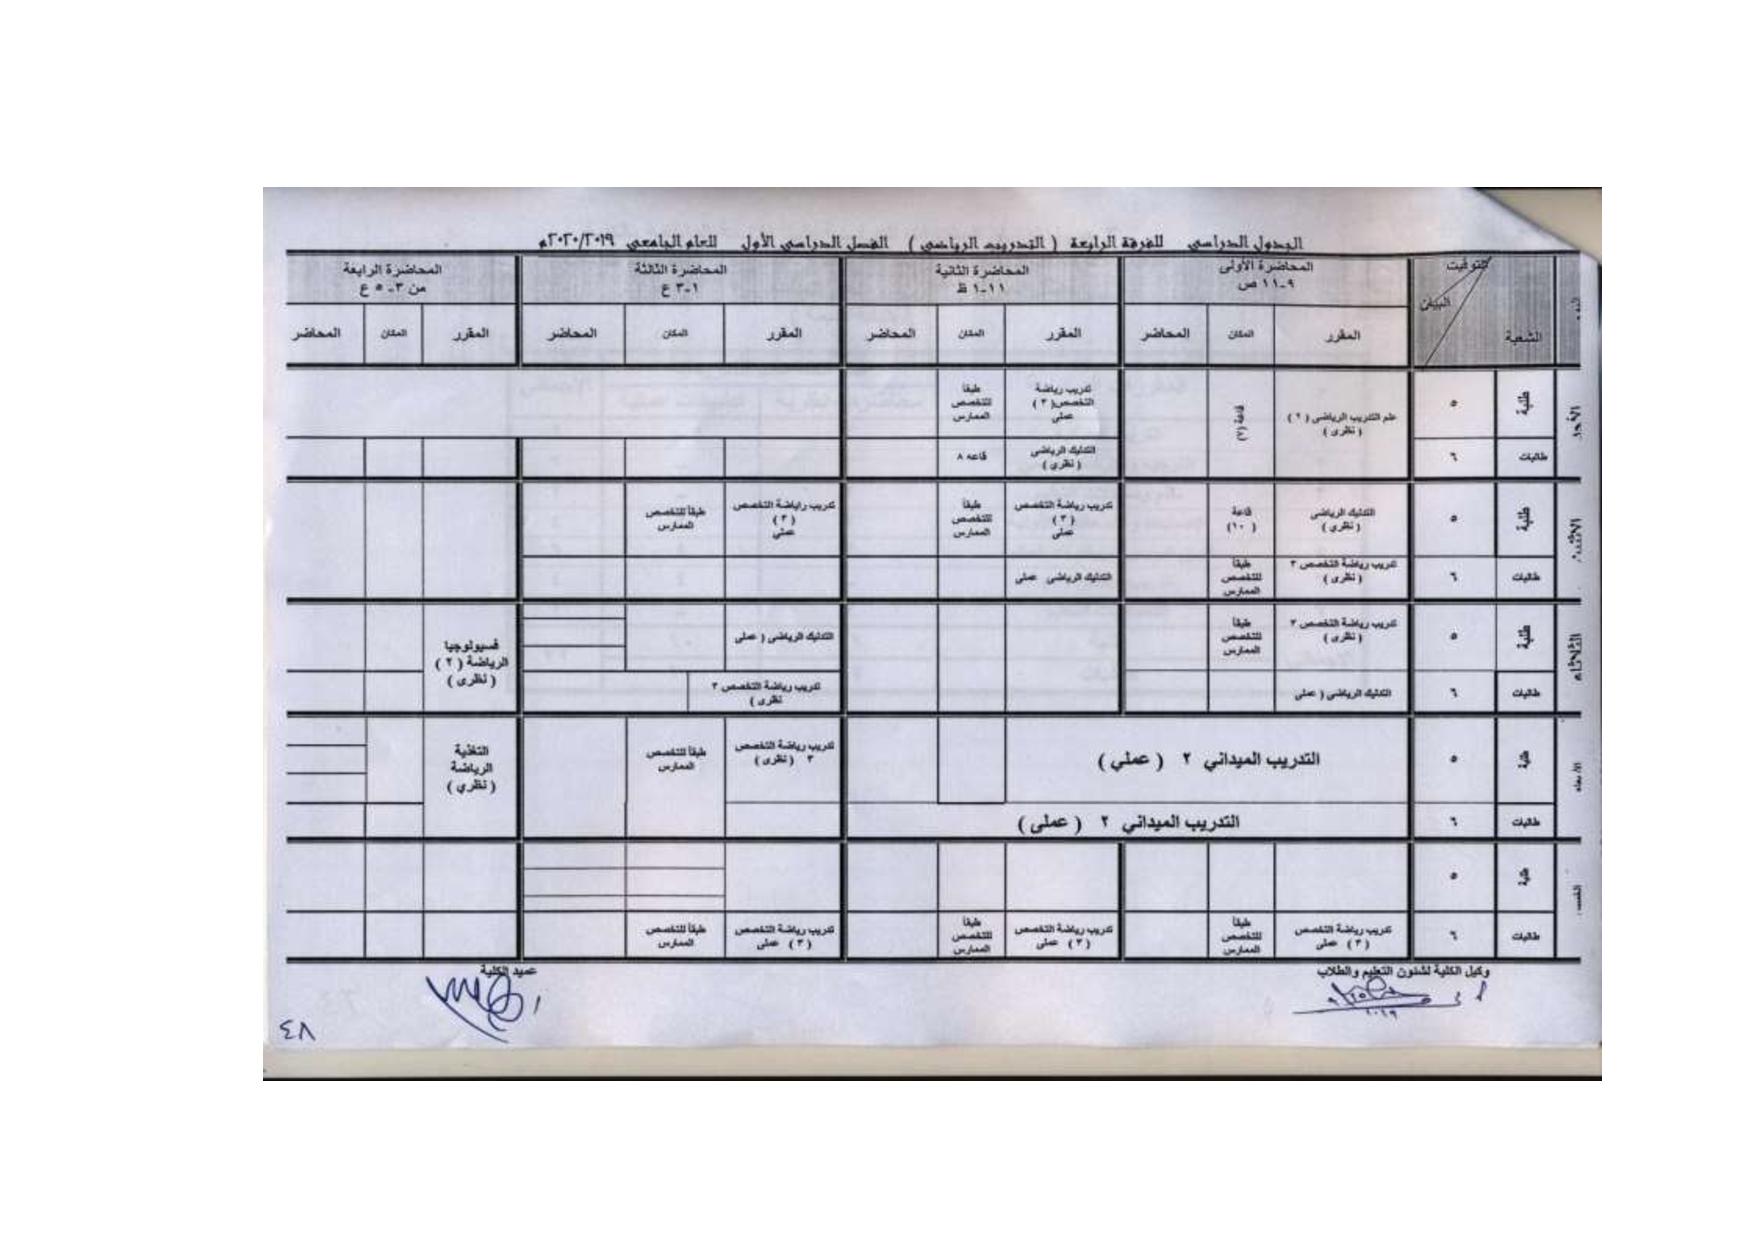 الجدول الدراسي للفرقة الرابعة ( التدريب الرياضي ) الفصل الدراسي الأول للعام الجامعي ٢٠٢٠/٢٠١٩م
التوقيت
البيان
الشعبة
المحاضرة الأولى
٩-١١ ص
المحاضرة الثانية
١١-١ ظ
المحاضرة الثالثة
١-٣ ع
المحاضرة الرابعة
من ٣-٥ ع
المقرر المكان المحاضر المقرر المكان المحاضر المقرر المكان المحاضر المقرر المكان المحاضر
الأحد
طلبة ٥
علم التدريب الرياضى ( ٢ )
( نظرى )
قاعة (٧)
تدريب رياضة
التخصص( ٣ )
عملى
طبقا
للتخصص
الممارس
طالبات ٦
التدليك الرياضى
( نظري )
قاعه ٨
طلبة ٥
التدليك الرياضى
( نظرى )
قاعة
( ١٠ )
تدريب رياضة التخصص
( ٣ )
عملى
طبقا
للتخصص
الممارس
تدريب راياضة التخصص
( ٣ )
عملى
طبقا للتخصص
الممارس
طالبات ٦
تدريب رياضة التخصص ٣
( نظرى )
طبقا
للتخصص
الممارس
التدليك الرياضى عملى
الثلاثاء
طلبة ٥
تدريب رياضة التخصص ٣
( نظرى )
طبقا
للتخصص
الممارس
التدليك الرياضى ( عملى
فسيولوجيا
الرياضة ( ٢ )
( نظرى )
طالبات ٦
التدليك الرياضى ( عملى
تدريب رياضة التخصص ٣
نظرى )
طلبة ٥
التدريب الميداني ٢ ( عملي )
تدريب رياضة التخصص
٣ ( نظرى )
طبقا للتخصص
الممارس
التغذية
الرياضة
( نظري )
طالبات ٦
التدريب الميداني ٢ ( عملى )
طلبة ٥
طالبات ٦
تدريب رياضة التخصص
( ٣ ) عملى
طبقا
للتخصص
الممارس
تدريب رياضة التخصص
( ٣ ) عملى
طبقا
للتخصص
الممارس
تدريب رياضة التخصص
( ٣ ) عملى
طبقا للتخصص
الممارس
وكيل الكلية لشئون التعليم والطلاب
عميد الكلية
٤٨